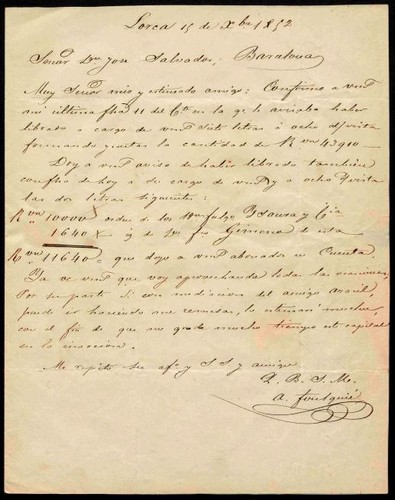 Lorca 15 de Xbre 1852
Señor Dn Jose Salvador, Barcelona
Muy Señor mio y estimado amigo: Confirmo a vmd
mi ultima fha 11 del Ct en la qe le avisaba haber
librado a cargo de vmd siete letras á ocho d/vista
formando juntas la cantidad de R vn 43910 —
Doy a vmd aviso de haber librado tambien
con fha de hoy a de cargo de vmd y a ocho d/vista
las dos letras siguientes:
R vn 10000 orden de los
1640 X id de Dn Gimeno de esta
R vn 11640 que dejo a vmd abonados en Cuenta.
Ya ve vmd que voy aprovechando todas las ocasiones,
Por su parte si con mediacion del amigo
puede ir haciendo me remesas, lo estimaré mucho,
con el fin de que no quede mucho tiempo este capital
en la inaccion.
Me repito su afo y S S y amigo
Q. B. S. M.
A. Foulquié